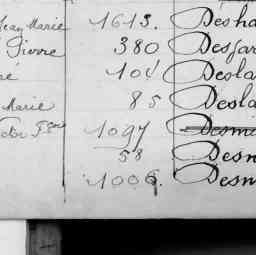 Jean Marie 1613. Desha
Pierre 380 Desfar
104 Desla
Marie 85 Desla
1097 Desmi
58 Desn
1006. Desn